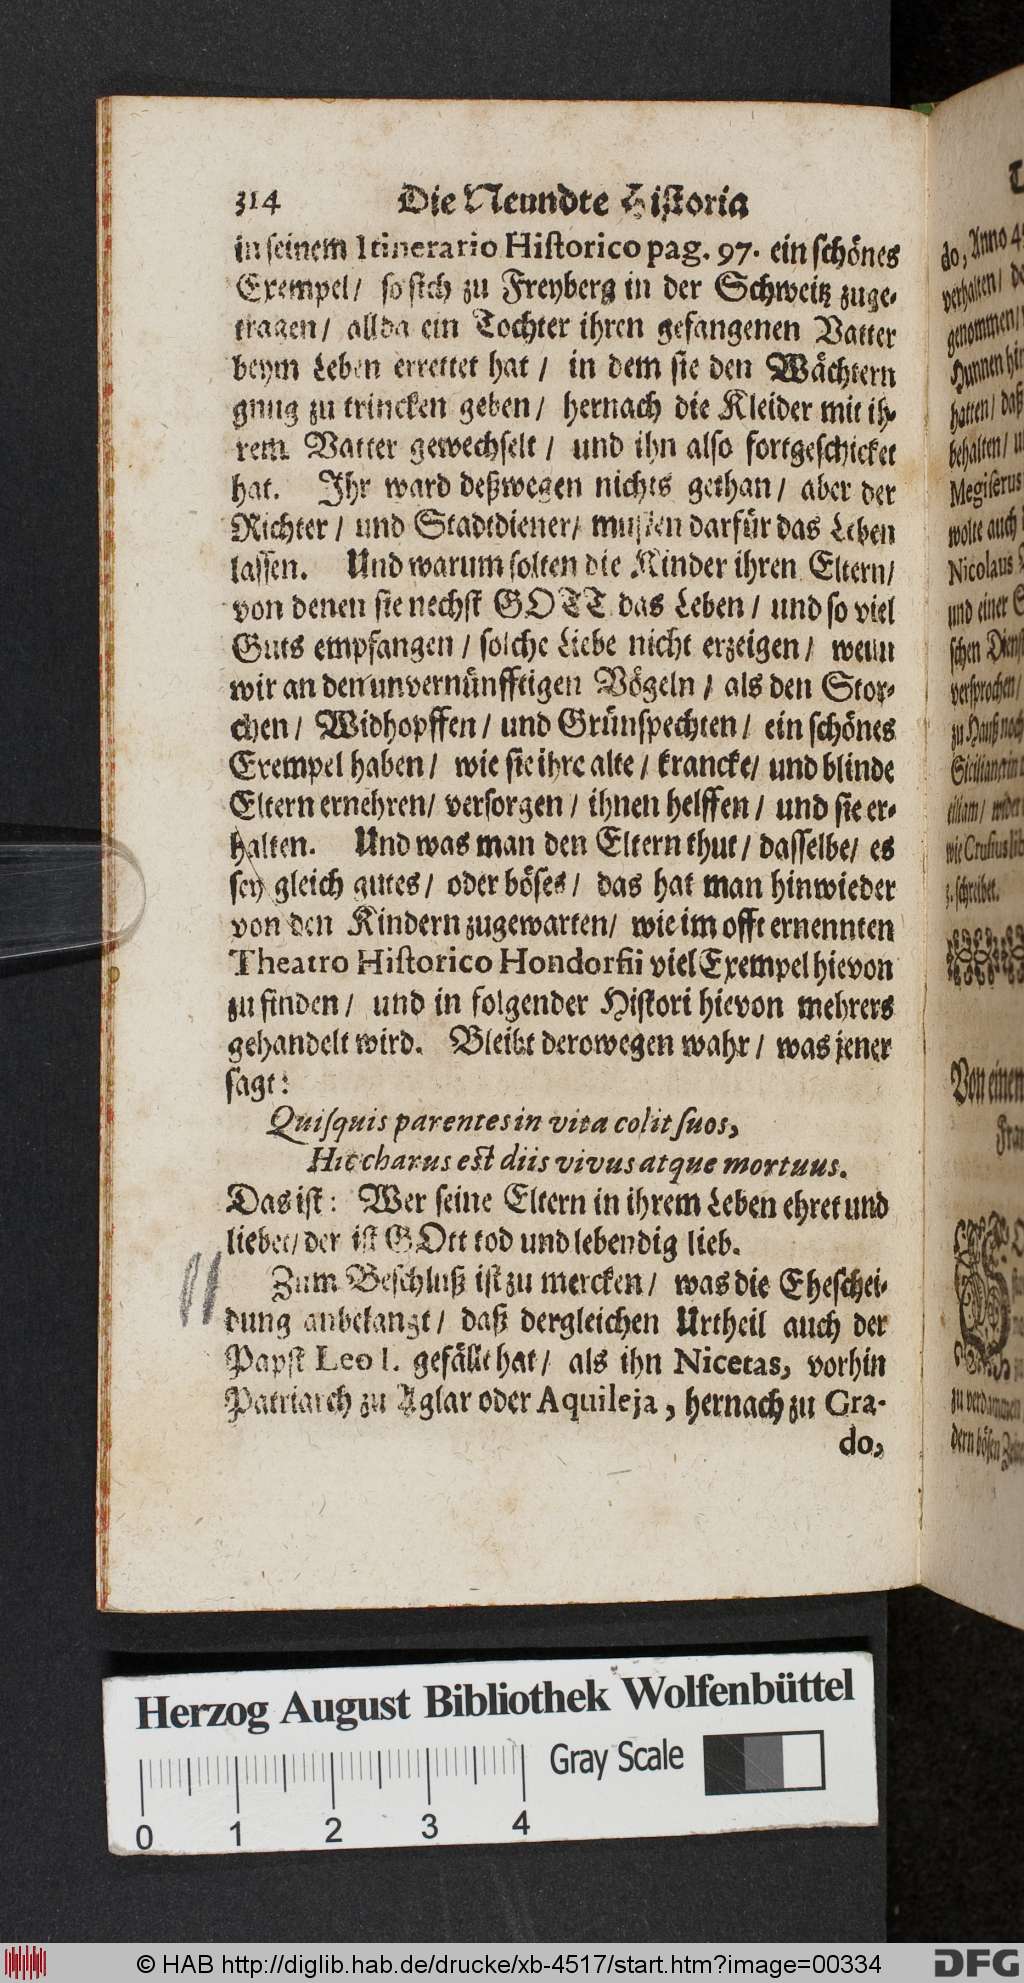 314 Die Neundte Historia
in seinem Itinerario Historico pag. 97. ein schönes
Exempel/ so sich zu Freyberg in der Schweitz zuge-
tragen/ allda ein Tochter ihren gefangenen Vatter
beym Leben errettet hat/ in dem sie den Wächtern
gnug zu trincken geben/ hernach die Kleider mit ih-
rem Vatter gewechselt/ und ihn also fortgeschicket
hat. Ihr ward deßwegen nichts gethan/ aber der
Richter/ und Stadtdiener/ musten darfür das Leben
lassen. Und warum solten die Kinder ihren Eltern/
von denen sie nechst GOTT das Leben/ und so viel
Guts empfangen/ solche Liebe nicht erzeigen/ wenn
wir an den unvernünfftigen Vögeln/ als den Stor-
chen/ Widhopffen/ und Grünspechten/ ein schönes
Exempel haben/ wie sie ihre alte/ krancke/ und blinde
Eltern ernehren/ versorgen/ ihnen helffen/ und sie er-
halten. Und was man den Eltern thut/ dasselbe/ es
sey gleich gutes/ oder böses/ das hat man hinwieder
von den Kindern zugewarten/ wie im offt ernennten
Theatro Historico Hondorfii viel Exempel hievon
zu finden/ und in folgender Histori hievon mehrers
gehandelt wird. Bleibt derowegen wahr/ was jener
sagt:
Quisquis parentes in vita colit suos,
Hic charus est diis vivus atque mortuus.
Das ist: Wer seine Eltern in ihrem Leben ehret und
liebet/ der ist GOtt tod und lebendig lieb.
Zum Beschluß ist zu mercken/ was die Eheschei-
dung anbelangt/ daß dergleichen Urtheil auch der
Papst Leo I. gefällt hat/ als ihn Nicetas, vorhin
Patriarch zu Aglar oder Aquileja, hernach zu Gra-
do,
do, Anno 4
verhalten/
genommen/
Hunnen
hatten/ daß
behalten/
Megiserus
wolte auch
Nicolaus
und einer
schen
versprochen/
zu Hauß noch
wie Crusius lib.
3. schreibet.
Von einem
zu verdammen
dern bösen
Herzog August Bibliothek Wolfenbüttel
Gray Scale
0 1 2 3 4
© HAB http://diglib.hab.de/drucke/xb-4517/start.htm?image=00334
DFG